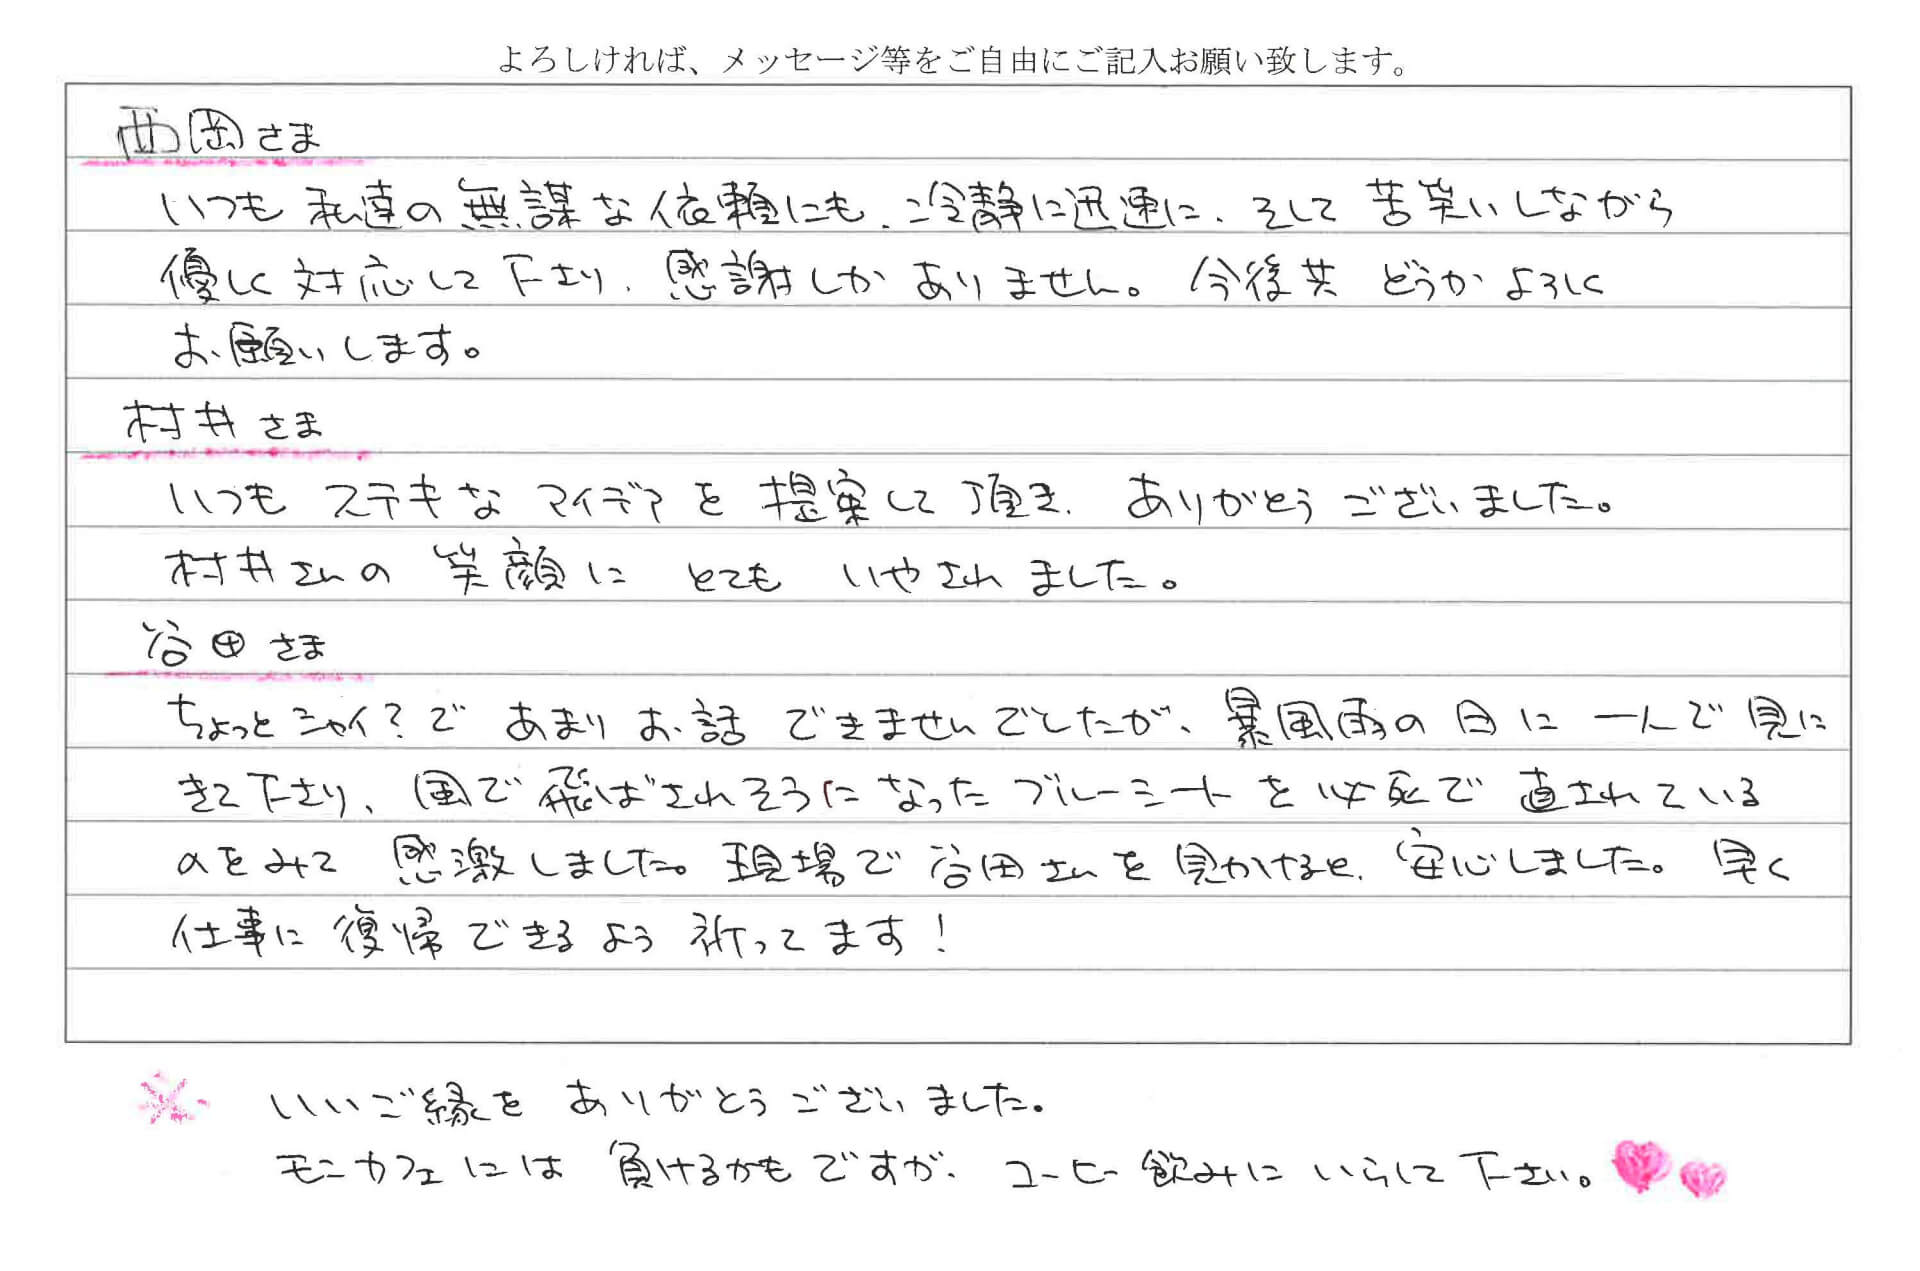 よろしければ、メッセージ等をご自由にご記入お願い致します。
西岡さま
いつも私達の無謀な依頼にも、冷静に迅速に、そして苦笑いしながら
優しく対応して下さり、感謝しかありません。今後共どうかよろしく
お願いします。
村井さま
いつもステキなアイデアを提案して頂き、ありがとうございました。
村井さんの笑顔にとてもいやされました。
谷田さま
ちょっとシャイ?であまりお話できませんでしたが、暴風雨の日に一人で見に
きて下さり、風で飛ばされそうになったブルーシートを必死で直されている
のをみて感激しました。現場で谷田さんを見かけると、安心しました。早く
仕事に復帰できるよう祈ってます!
※ いいご縁をありがとうございました。
モニカフェには負けるかもですが、コーヒー飲みにいらして下さい。